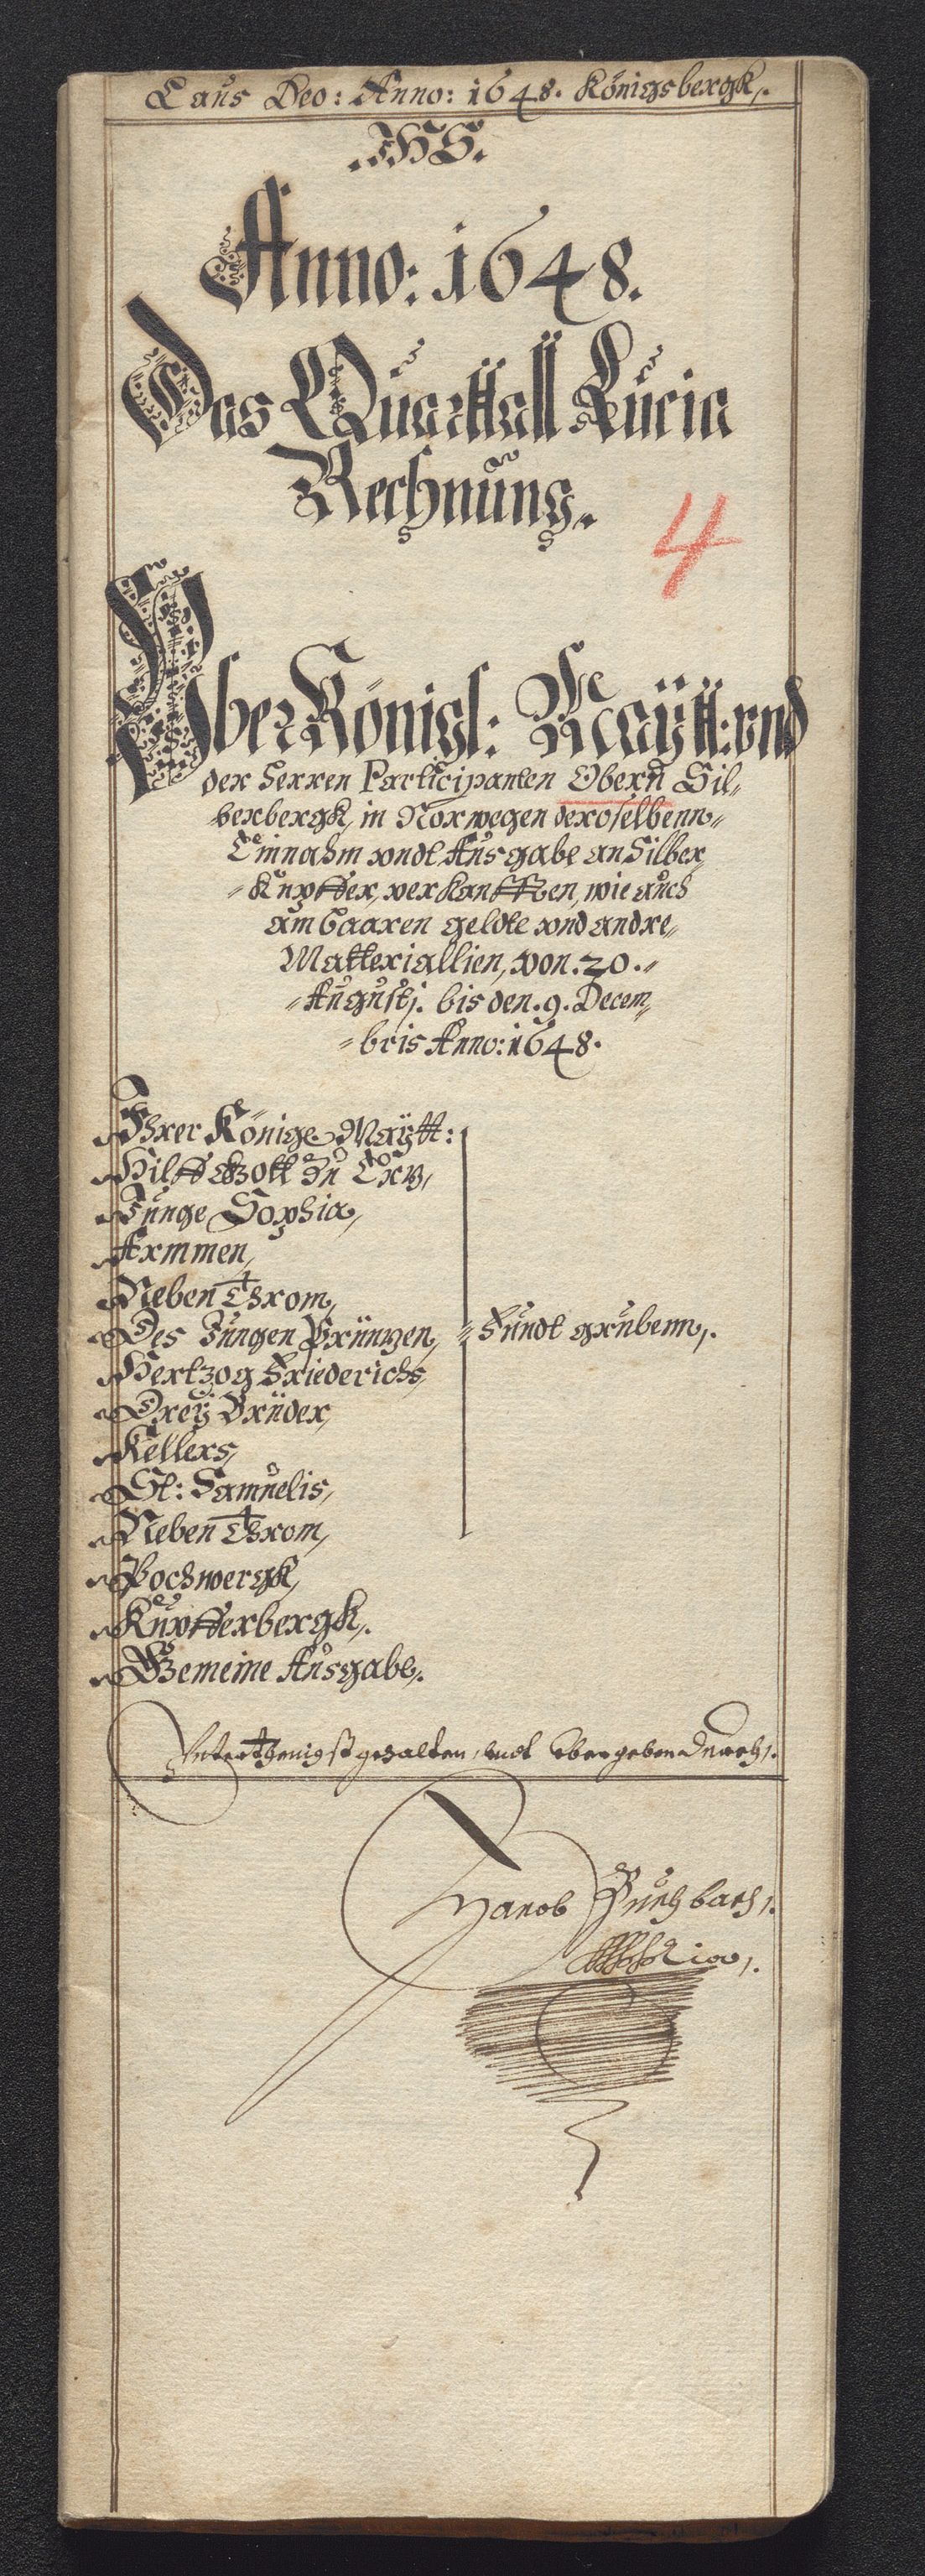 Laus Deo: Anno: 1648. Königsbergk,.
.IHS.
Anno: 1648.
Das Quarttall Lucia
Rechnung.
4
Vber Königl: Maÿtt: vnd
der Herren Participanten Obern Sil„
berbergk, in Norwegen deroselbenn„
Einnahm vndt Ausgabe an Silber,
„Kupffer, verkaufften, wie auch
am baaren geldte vnd andre„
Matteriallien, von. 20.„
„Augustj. bis den. 9. Decem„
„bris Anno: 1648.
Ihrer Könige Maÿtt:
Hilff Gott Zu Erz,
Junge Sophia,
Armmen,
Neben Throm,
Des Jungen Printzen, „Fundt grubenn,.
Hertzog Friederichs,
Dreÿ Brüder,
Kellers,
St: Samuelis,
Neben Throm,
Pochwergk,
Kupfferbergk,.
Gemeine Ausgabe,.
Vnterthenigst gehalten, vndt Vbergeben Durch,.
Jacob